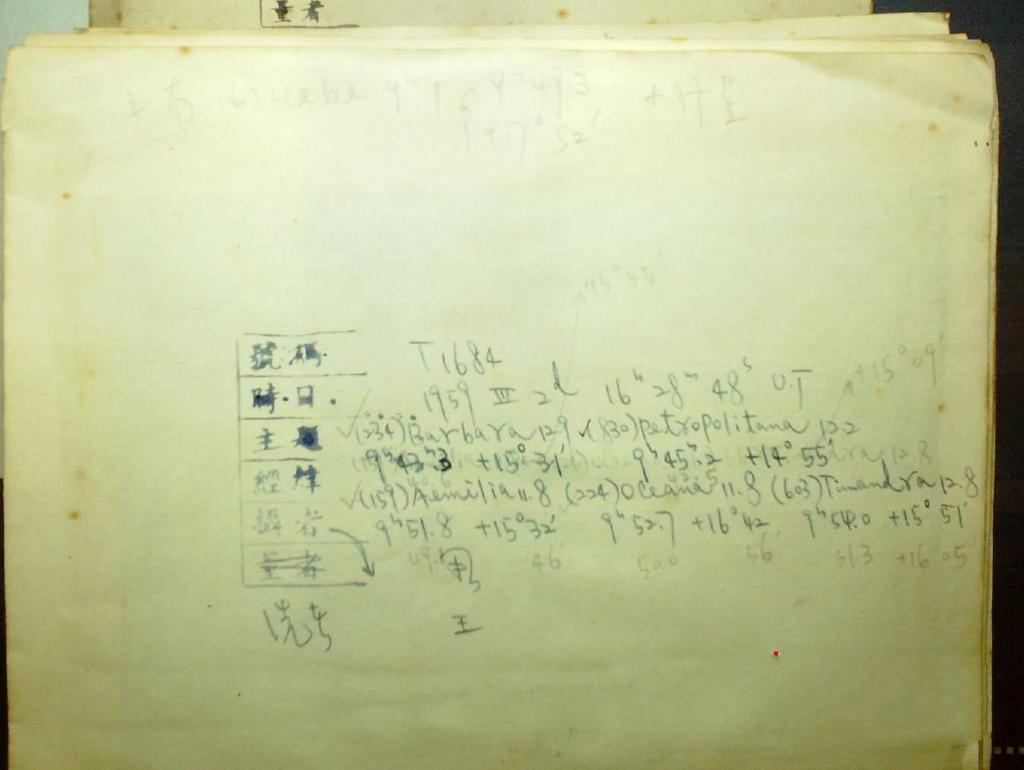 量者
(6) Hebe 9
+17° 52'
+15° 45'
號碼. T1684
+15° 09'
時.日. 1959 III 2d 16h 28m 48s U.T
主題 ✓(234) Barbara 12.9 ✓(830) petropolitana 12.2
9h 43m.3 +15° 31' 9h 45m.2 +14° 55'
經緯 ✓(159) Aemilia 11.8 (224) Oceana 11.8 (603) Timandra 12.8
9h 51.8 +15° 32' 9h 52.7 +16° 42 9h 54.0 +15° 51'
攝者
量者 46' 50.0 56' 51.3 +16° 05'
王